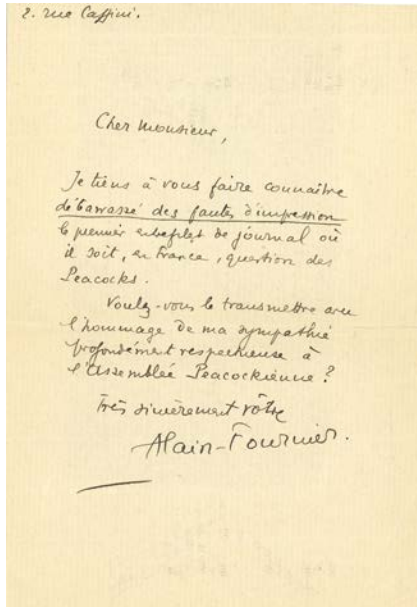 2. rue Cassini.
Cher Monsieur,
Je tiens à vous faire connaître
débarrassé des fautes d'impression
le premier entrefilet de journal où
il soit, en France, question des
Peacocks.
Voulez-vous le transmettre avec
l'hommage de ma sympathie
profondément respectueuse à
l'Assemblée Peacockienne ?
Très sincèrement vôtre
Alain-Fournier.